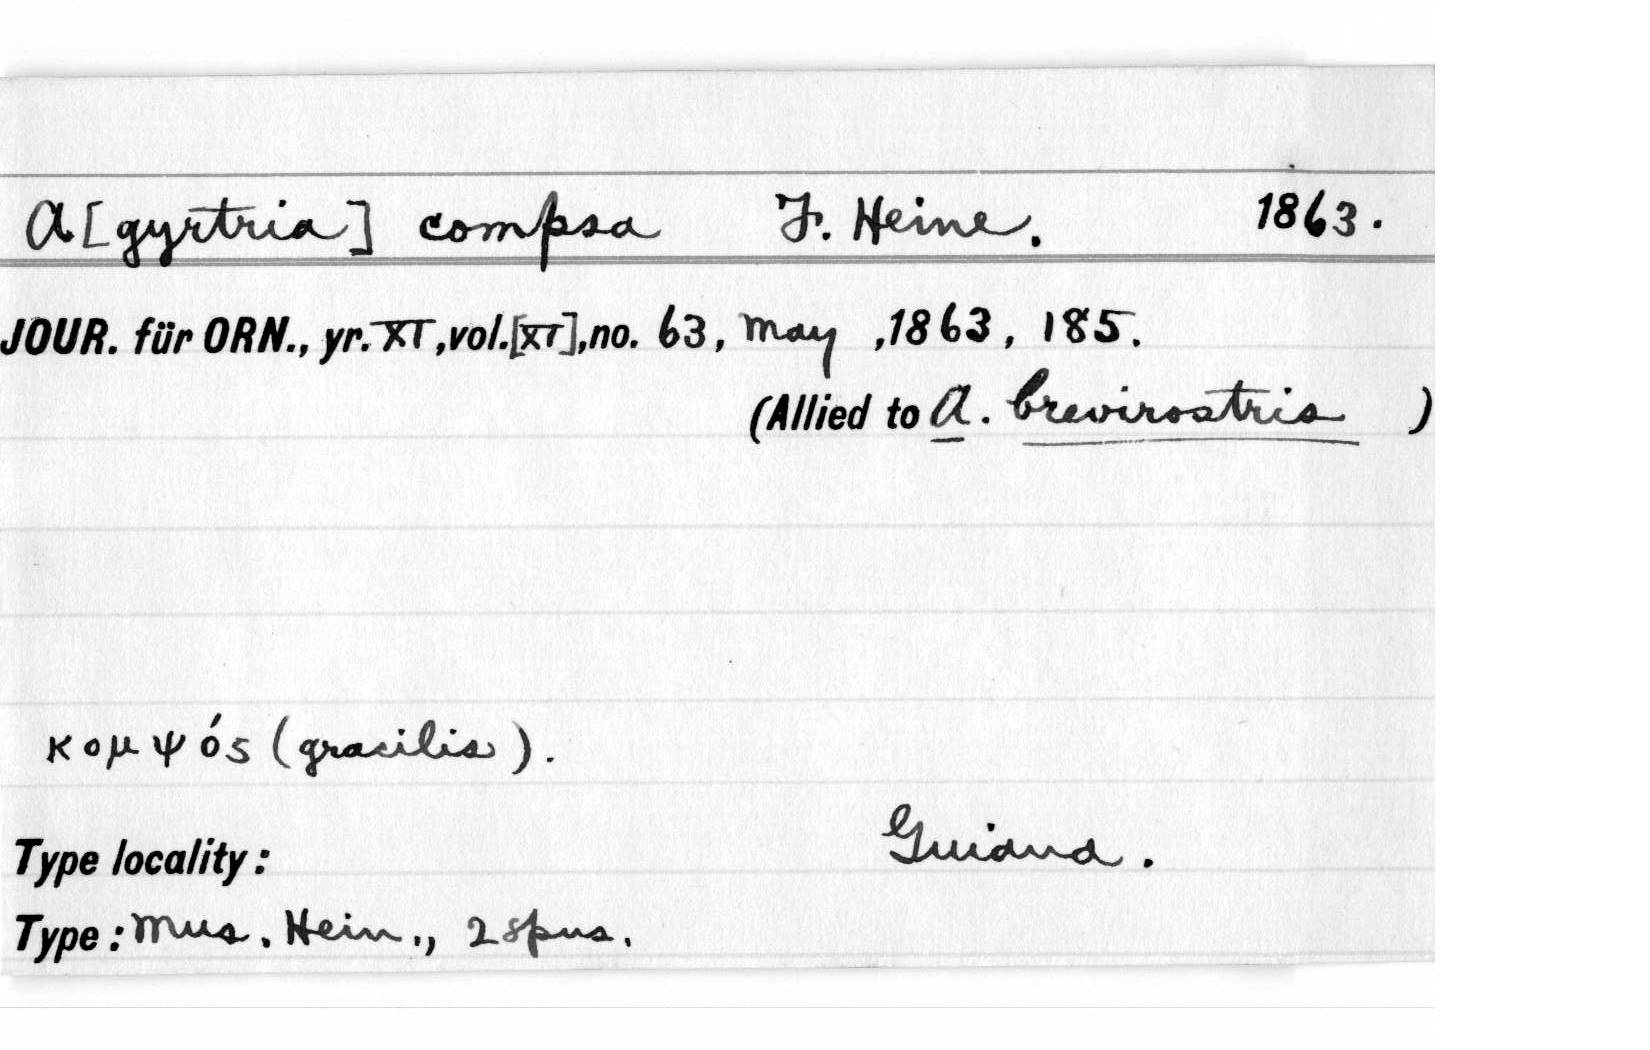 A[gyrtria] compsa F. Heine. 1863.
JOUR. für ORN., yr. XI, vol. [XI], no. 63, May, 1863, 185.
(Allied to A. brevirostris)
κομψός (gracilis).
Guiana.
Type locality:
Type: Mus. Hein., 2 spns.